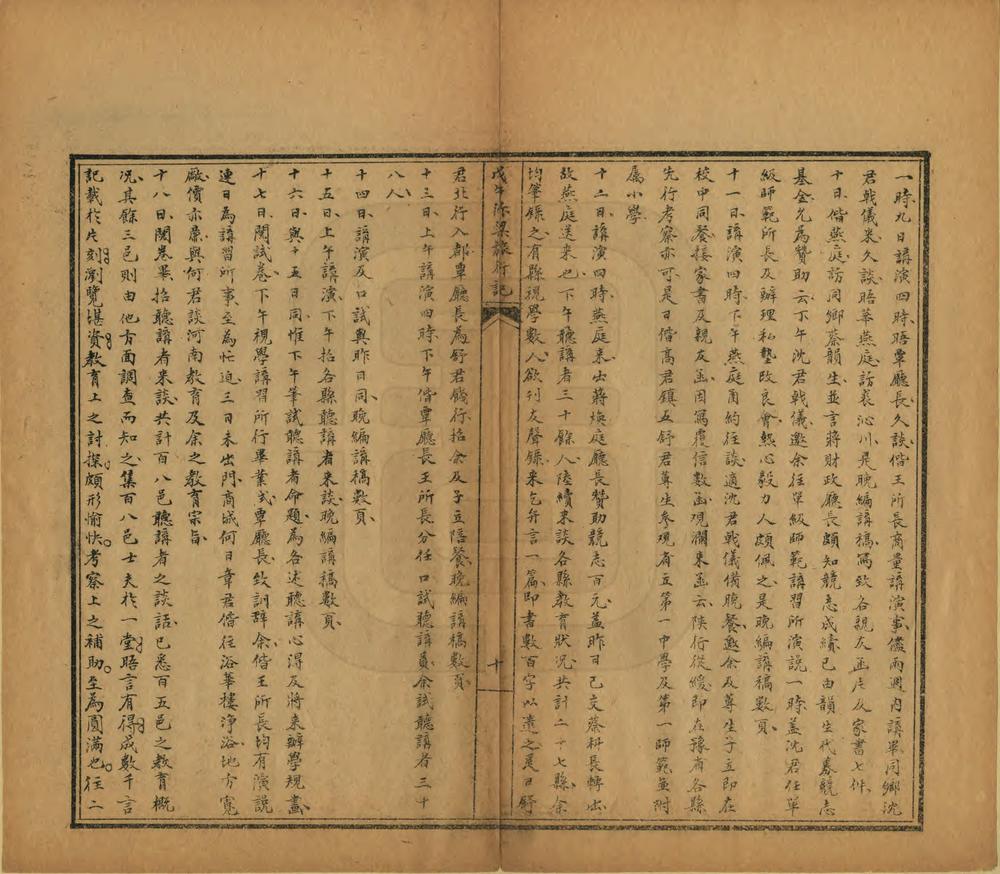 一時九日講演四時晤覃廳長久談偕王所長商量講演事儘兩週内講畢同鄉沈
君戟儀來久談晤華燕庭訪裴沁川是晚編講稿寫致各親友函片及家書七件
十日偕燕庭訪同鄉蔡韻生並言將財政廳長頗知競志成績已由韻生代募競志
基金允為贊助云下午沈君戟儀邀余往單級師範講習所演說一時蓋沈君任單
級師範所長及辦理私塾改良會熱心毅力人頗佩之是晚編講稿數頁
十一日講演四時下午燕庭函約往談適沈君戟儀備晚餐邀余及尊生子立即在
校中同餐接家書及親友函因寫覆信數函觀瀾來函云陝行從緩即在豫省各縣
先行考察亦可是日偕高君鎮五舒君尊生參觀省立第一中學及第一師範並附
屬小學
十二日講演四時燕庭來出蔣煥庭廳長贊助競志百元蓋昨日已交蔡科長轉出
故燕庭送來也下午聽講者三十餘人陸續來談各縣教育狀況共計二十七縣余
均筆錄之有縣視學數人欲刊友聲錄來乞弁言一篇即書數百字以遺之是日舒
戊午游梁旅行記
十
君北行入都覃廳長為舒君餞行招余及子立陪餐晚編講稿數頁
十三日上午講演四時下午偕覃廳長王所長分任口試聽講員余試聽講者三十
八人
十四日講演及口試與昨日同晚編講稿數頁
十五日上午講演下午招各縣聽講者來談晚編講稿數頁
十六日與十五日同惟下午筆試聽講者命題為各述聽講心得及將來辦學規畫
十七日閱試卷下午視學講習所行畢業式覃廳長致訓辭余偕王所長均有演說
連日為講習所事至為忙迫三日未出門商城何日章君偕往浴華樓淨浴地方寬
敞價亦廉與何君談河南教育及余之教育宗旨
十八日閱卷畢招聽講者來談共計百八邑聽講者之談話已悉百五邑之教育概
況其餘三邑則由他方面調查而知之集百八邑士夫於一堂晤言有得成數千言
記載於片刻瀏覽堪資教育上之討探頗形愉快考察上之補助至為圓滿也往二